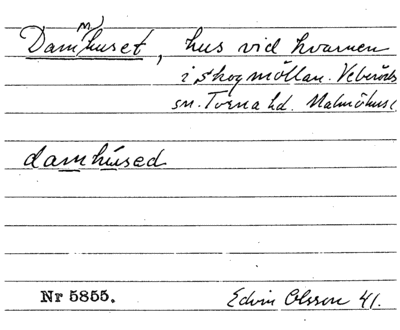 Dammhuset, hus vid kvarnen
i Skogmöllan. Veberöds
sn. Torna hd. Malmöhus l
damhúsed
Nr 5855.
Edvin Olsson 41.